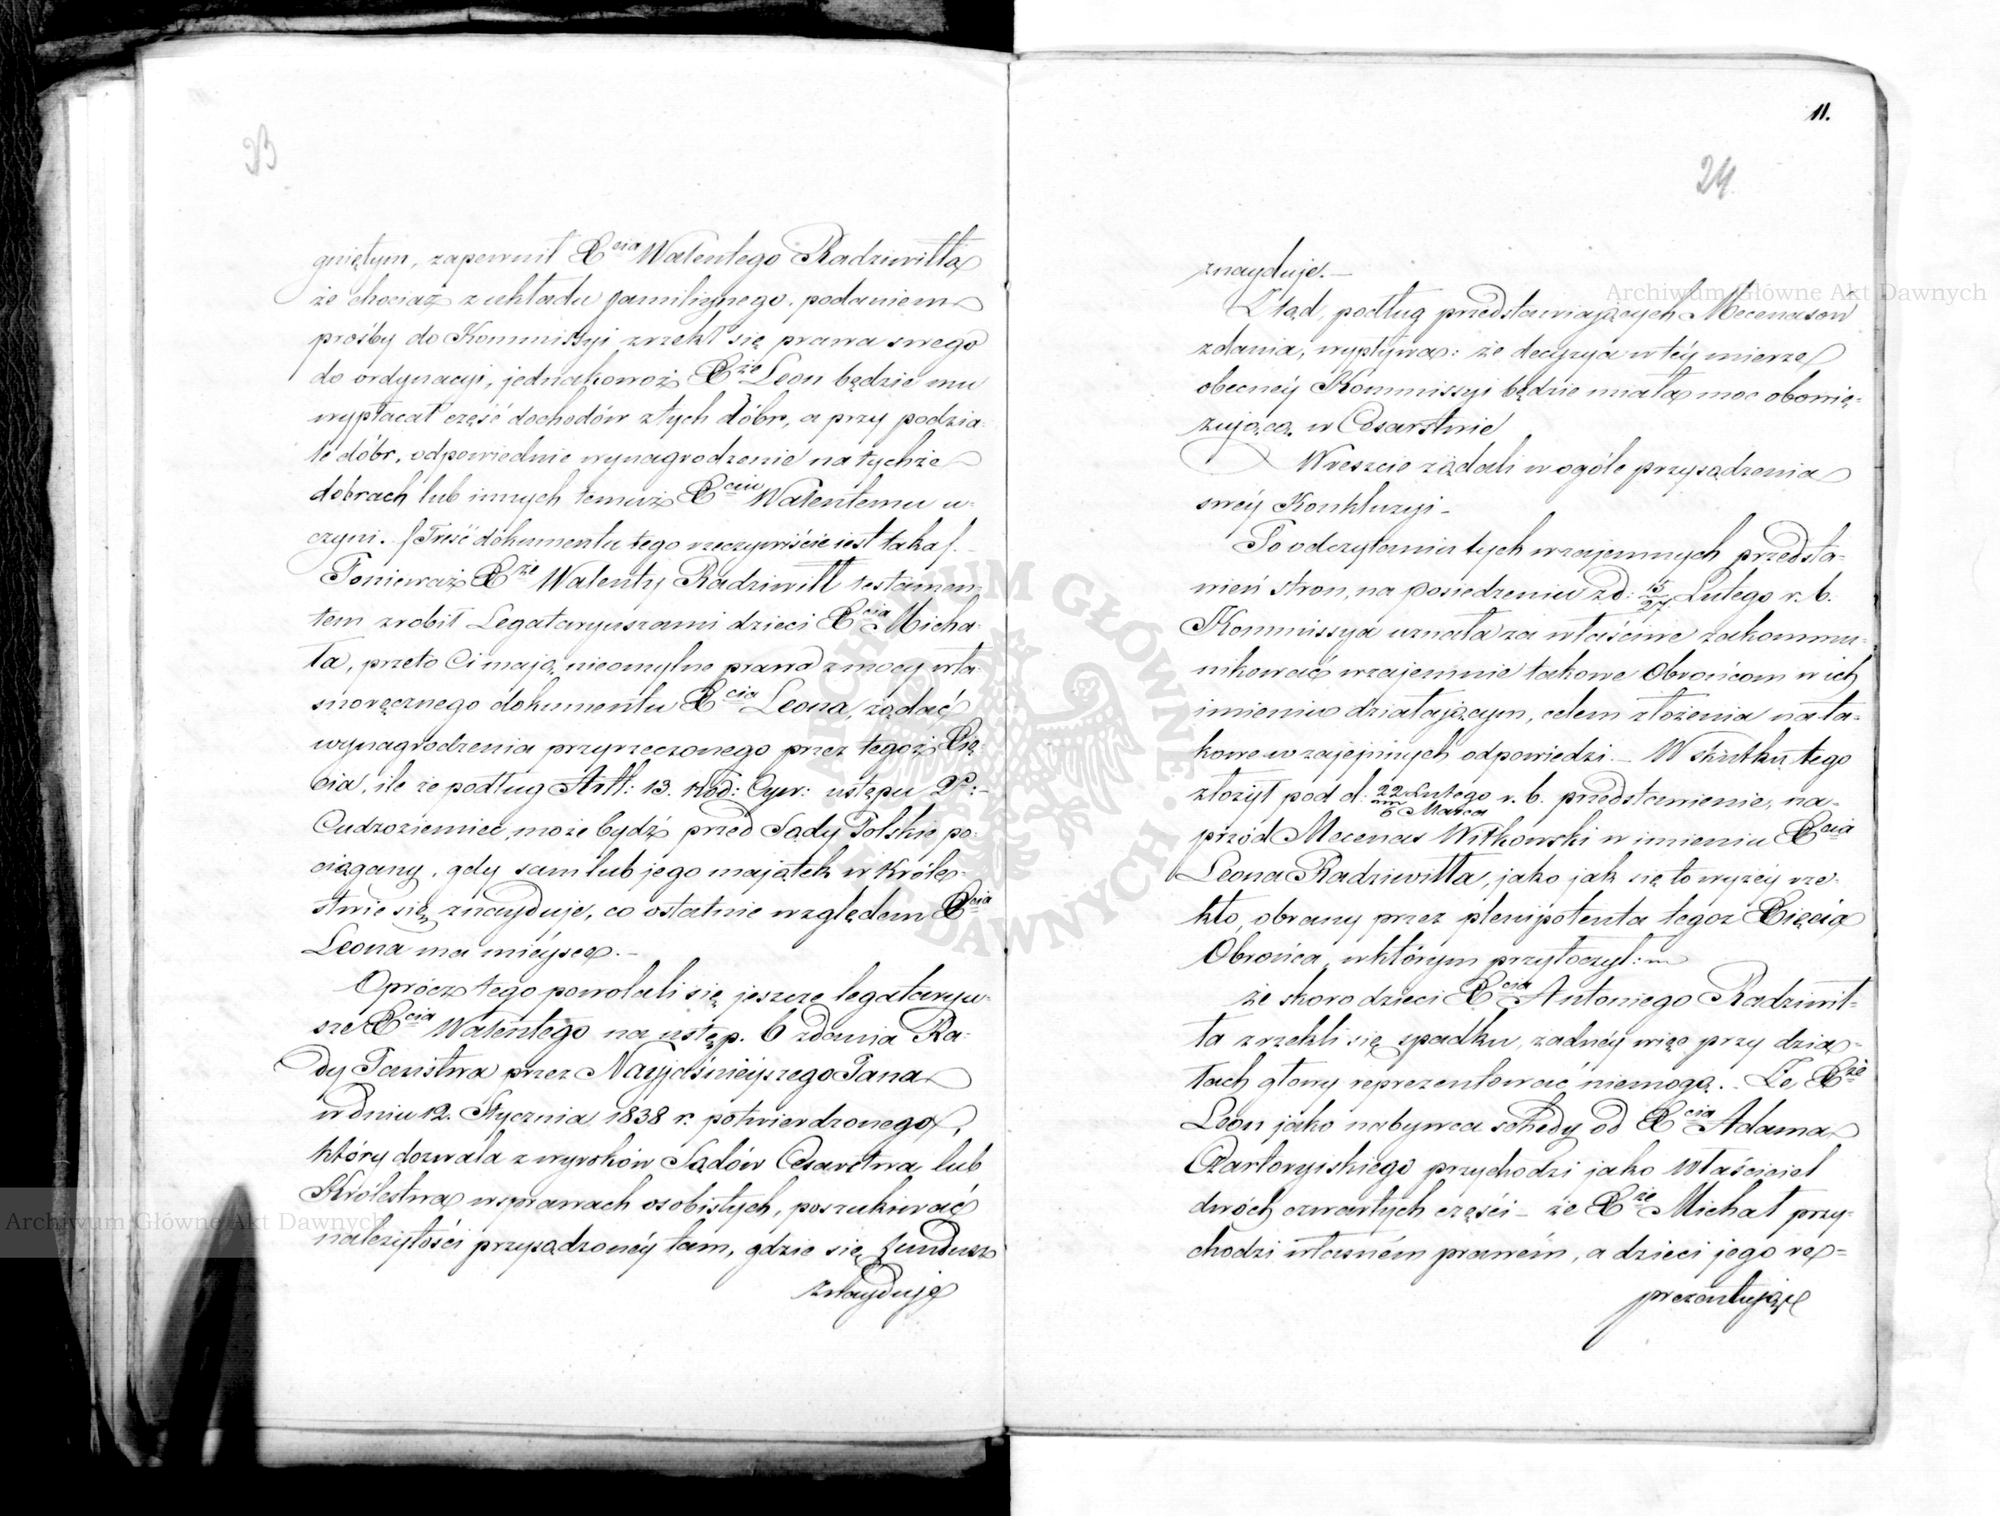 23
gniętym, zapewnił Xcia Walentego Radziwiłła
że chociaż z układu familijnego, podaniem
prośby do Kommissyi zrzekł się prawa swego
do ordynacyi, jednakowoż Xże Leon będzie mu
wypłacał część dochodów z tych dóbr, a przy podzia-
le dóbr, odpowiednie wynagrodzenie na tychże
dobrach lub innych temuż Xciu Walentemu u-
czyni. /Treść dokumentu tego rzeczywiście iest taka/.
Ponieważ Xże Walenty Radziwiłł testamen-
tem zrobił Legataryuszami dzieci Xcia Micha-
ła, przeto Ci mają nieomylne prawo z mocy wła-
snoręcznego dokumentu Xcia Leona, żądać
wynagrodzenia przyrzeczonego przez tegoż Xię-
cia, ile że podług Artt: 13. Kod: Cyw: ustępu 2o:-
Cudzoziemiec może bydź przed Sądy Polskie po-
ciągany, gdy sam lub jego majątek w Króle-
stwie się znayduje, co ostatnie względem Xcia
Leona ma mieysce.-
Oprócz tego powołali się jeszcze legataryu-
sze Xcia Walentego na ustęp. 6 zdania Ra-
dy Państwa przez Nayjaśnieyszego Pana
w dniu 12. Stycznia 1838 r. potwierdzonego,
który dozwala z wyroków Sądów Cesarstwa lub
Królestwa w sprawach osobistych, poszukiwać
należytości przysądzonéy tam, gdzie się fundusz
znayduje
11.
24
znayduje.-
Ztąd, podług przedstawiających Mecenasów
zdania, wypływa: że decyzya w téy mierze
obecnéy Kommissyi będzie miała moc obowię-
zującą w Cesarstwie
Wreszcie żądali w ogóle przysądzenia
swéy Konkluzyi-
Po odczytaniu tych wzajemnych przedsta-
wień stron, na posiedzeniu z d: 15/27 Lutego r. b.
Kommissya uznała za właściwe zakommu-
nikować wzajemnie takowe Obrońcom w ich
imieniu działającym, celem złożenia na ta-
kowe wzajemnych odpowiedzi.- W skutku tego
złożył pod d: 22 Lutego/6 Marca r. b. przedstawienie, na-
przód Mecenas Witkowski w imieniu Xcia
Leona Radziwiłła, jako jak się to wyżey rze-
kło, obrany przez plenipotenta tegoż Xięcia
Obrońca, w którym przytoczył:
że skoro dzieci Xcia Antoniego Radziwił-
ła zrzekli się spadku, żadnéy więc przy dzia-
łach głowy reprezentować niemogą.. Że Xże
Leon jako nabywca schedy od Xcia Adama
Czartoryiskiego przychodzi jako właściciel
dwóch czwartych części- że Xże Michał przy-
chodzi własném prawém, a dzieci jego re-
prezentując
Archiwum Główne Akt Dawnych
Archiwum Główne Akt Dawnych
ARCHIWUM GŁÓWNE AKT DAWNYCH